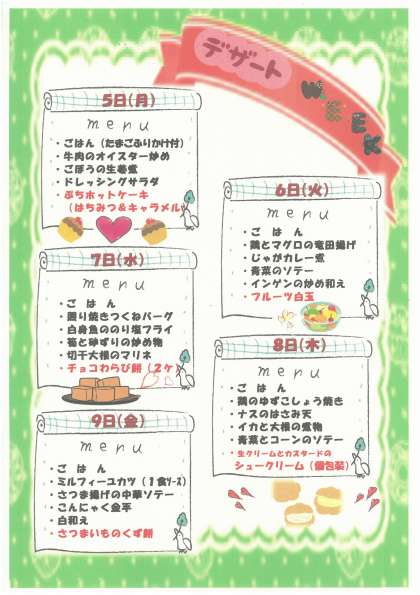 デザート
WEEK
5日(月)
menu
・ごはん(たまごふりかけ付)
・牛肉のオイスター炒め
・ごぼうの生姜煮
・ドレッシングサラダ
・ぷちホットケーキ
(はちみつ&キャラメル)
6日(火)
menu
・ごはん
・鶏とマグロの竜田揚げ
・じゃがカレー煮
・青菜のソテー
・インゲンの炒め和え
・フルーツ白玉
7日(水)
menu
・ごはん
・照り焼きつくねバーグ
・白身魚ののり塩フライ
・筍と砂ずりの炒め物
・切干大根のマリネ
・チョコわらび餅(2ケ)
8日(木)
menu
・ごはん
・鶏のゆずこしょう焼き
・ナスのはさみ天
・イカと大根の煮物
・青菜とコーンのソテー
・生クリームとカスタードの
シュークリーム(個包装)
9日(金)
menu
・ごはん
・ミルフィーユカツ(1食ソース)
・さつま揚げの中華ソテー
・こんにゃく金平
・白和え
・さつまいものくず餅